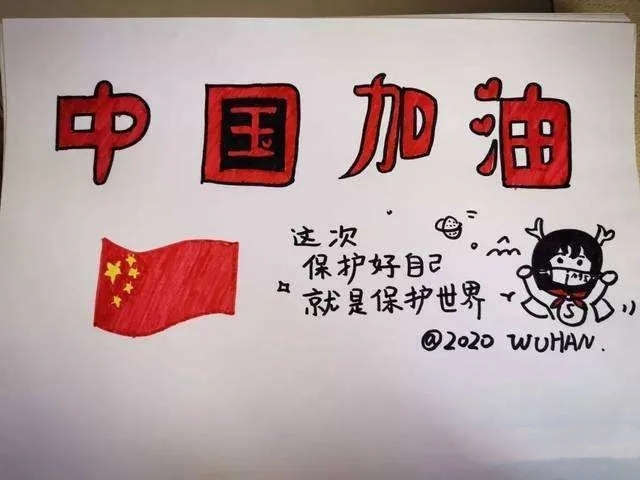 中国加油
这次
保护好自己
就是保护世界
@2020 WUHAN.